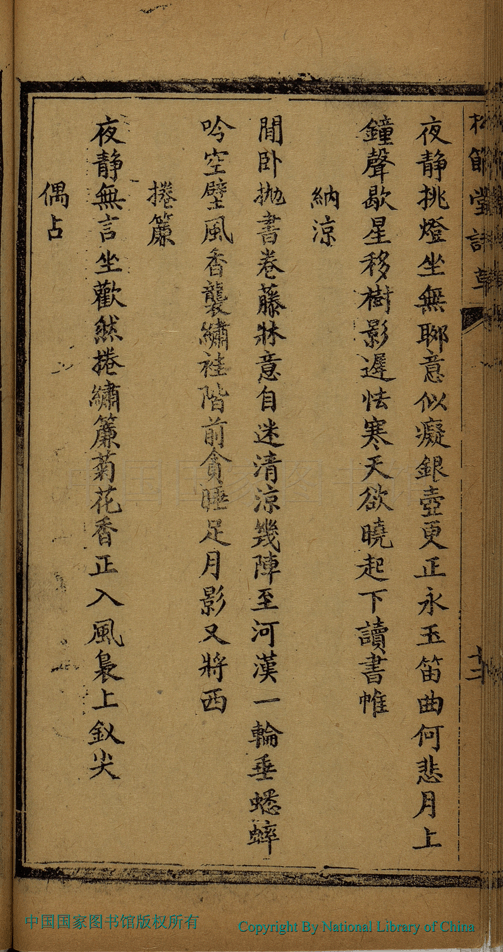 夜静挑燈坐無聊意似癡銀壺更正永玉笛曲何悲月上
鐘聲歇星移樹影遲怯寒天欲曉起下讀書帷
納涼
閒卧抛書卷藤牀意自迷清涼幾陣至河漢一輪垂蟋蟀
吟空壁風香襲繡袿階前貪睡足月影又將西
捲簾
夜静無言坐歡然捲繡簾菊花香正入風裊上釵尖
偶占
中国国家图书馆版权所有
Copyright By National Library of China